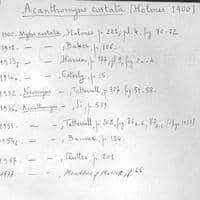 Acanthomysis costata (Holmes 1900)
1900. Mysis costata, Holmes, p. 221, pl. 4, fig. 70-72.
1912. — — , Baker, p. 106.
1913. — — , Hansen, p. 177, pl. 9, fig. 2a-k.
1914. — — , Esterly, p. 15
1932. Neomysis — , Tattersall, p. 327, fig. 51-52.
1936. Acanthomysis — , Ii, p. 539.
1951. — — , Tattersall, p. 202,
1954. — — , Banner, p. 134.
1957. — — , Clutter, p. 203
1977 — — , Mauchline & Murano, p. 46